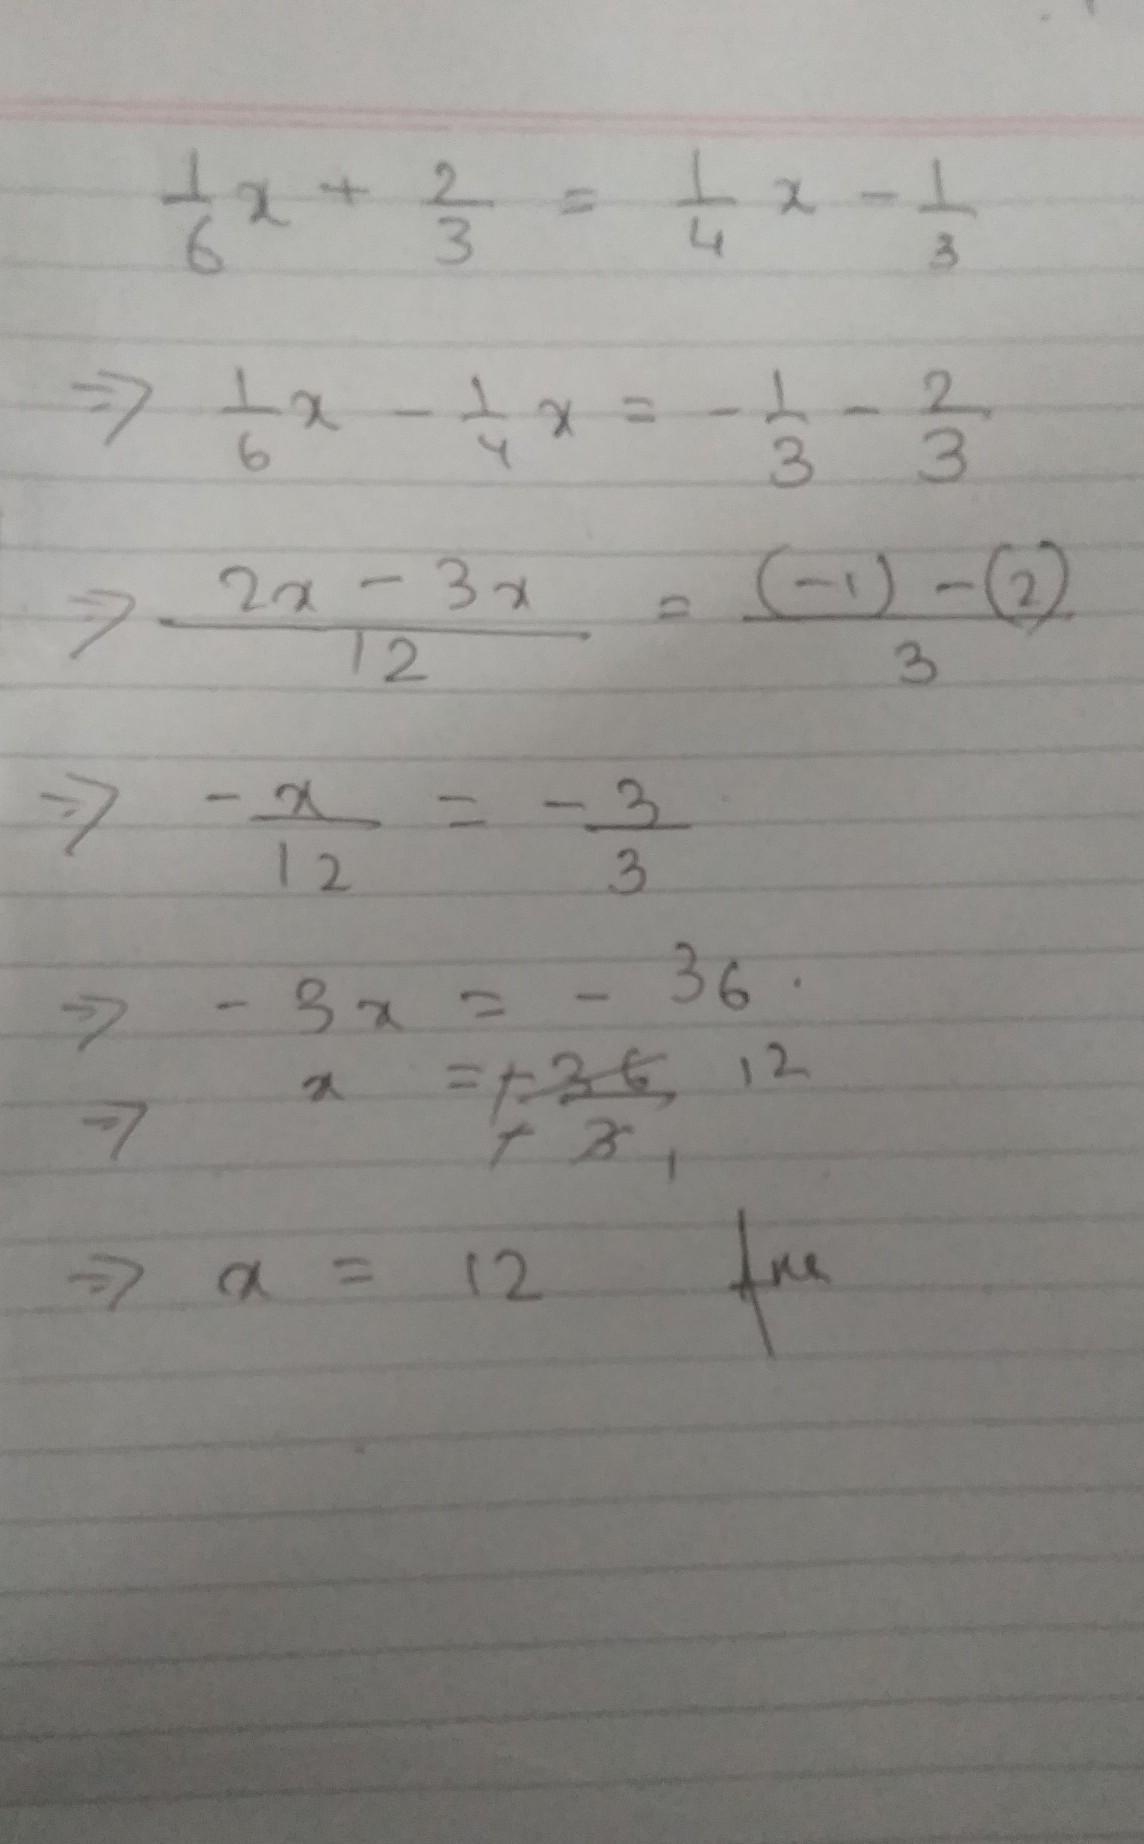 1/6 x + 2/3 = 1/4 x - 1/3
⇒ 1/6 x - 1/4 x = - 1/3 - 2/3
⇒ (2x - 3x)/12 = ((-1) - (2))/3
⇒ - x/12 = - 3/3
⇒ - 3x = - 36.
⇒ x = +36/+3 12 1
⇒ x = 12 Ans